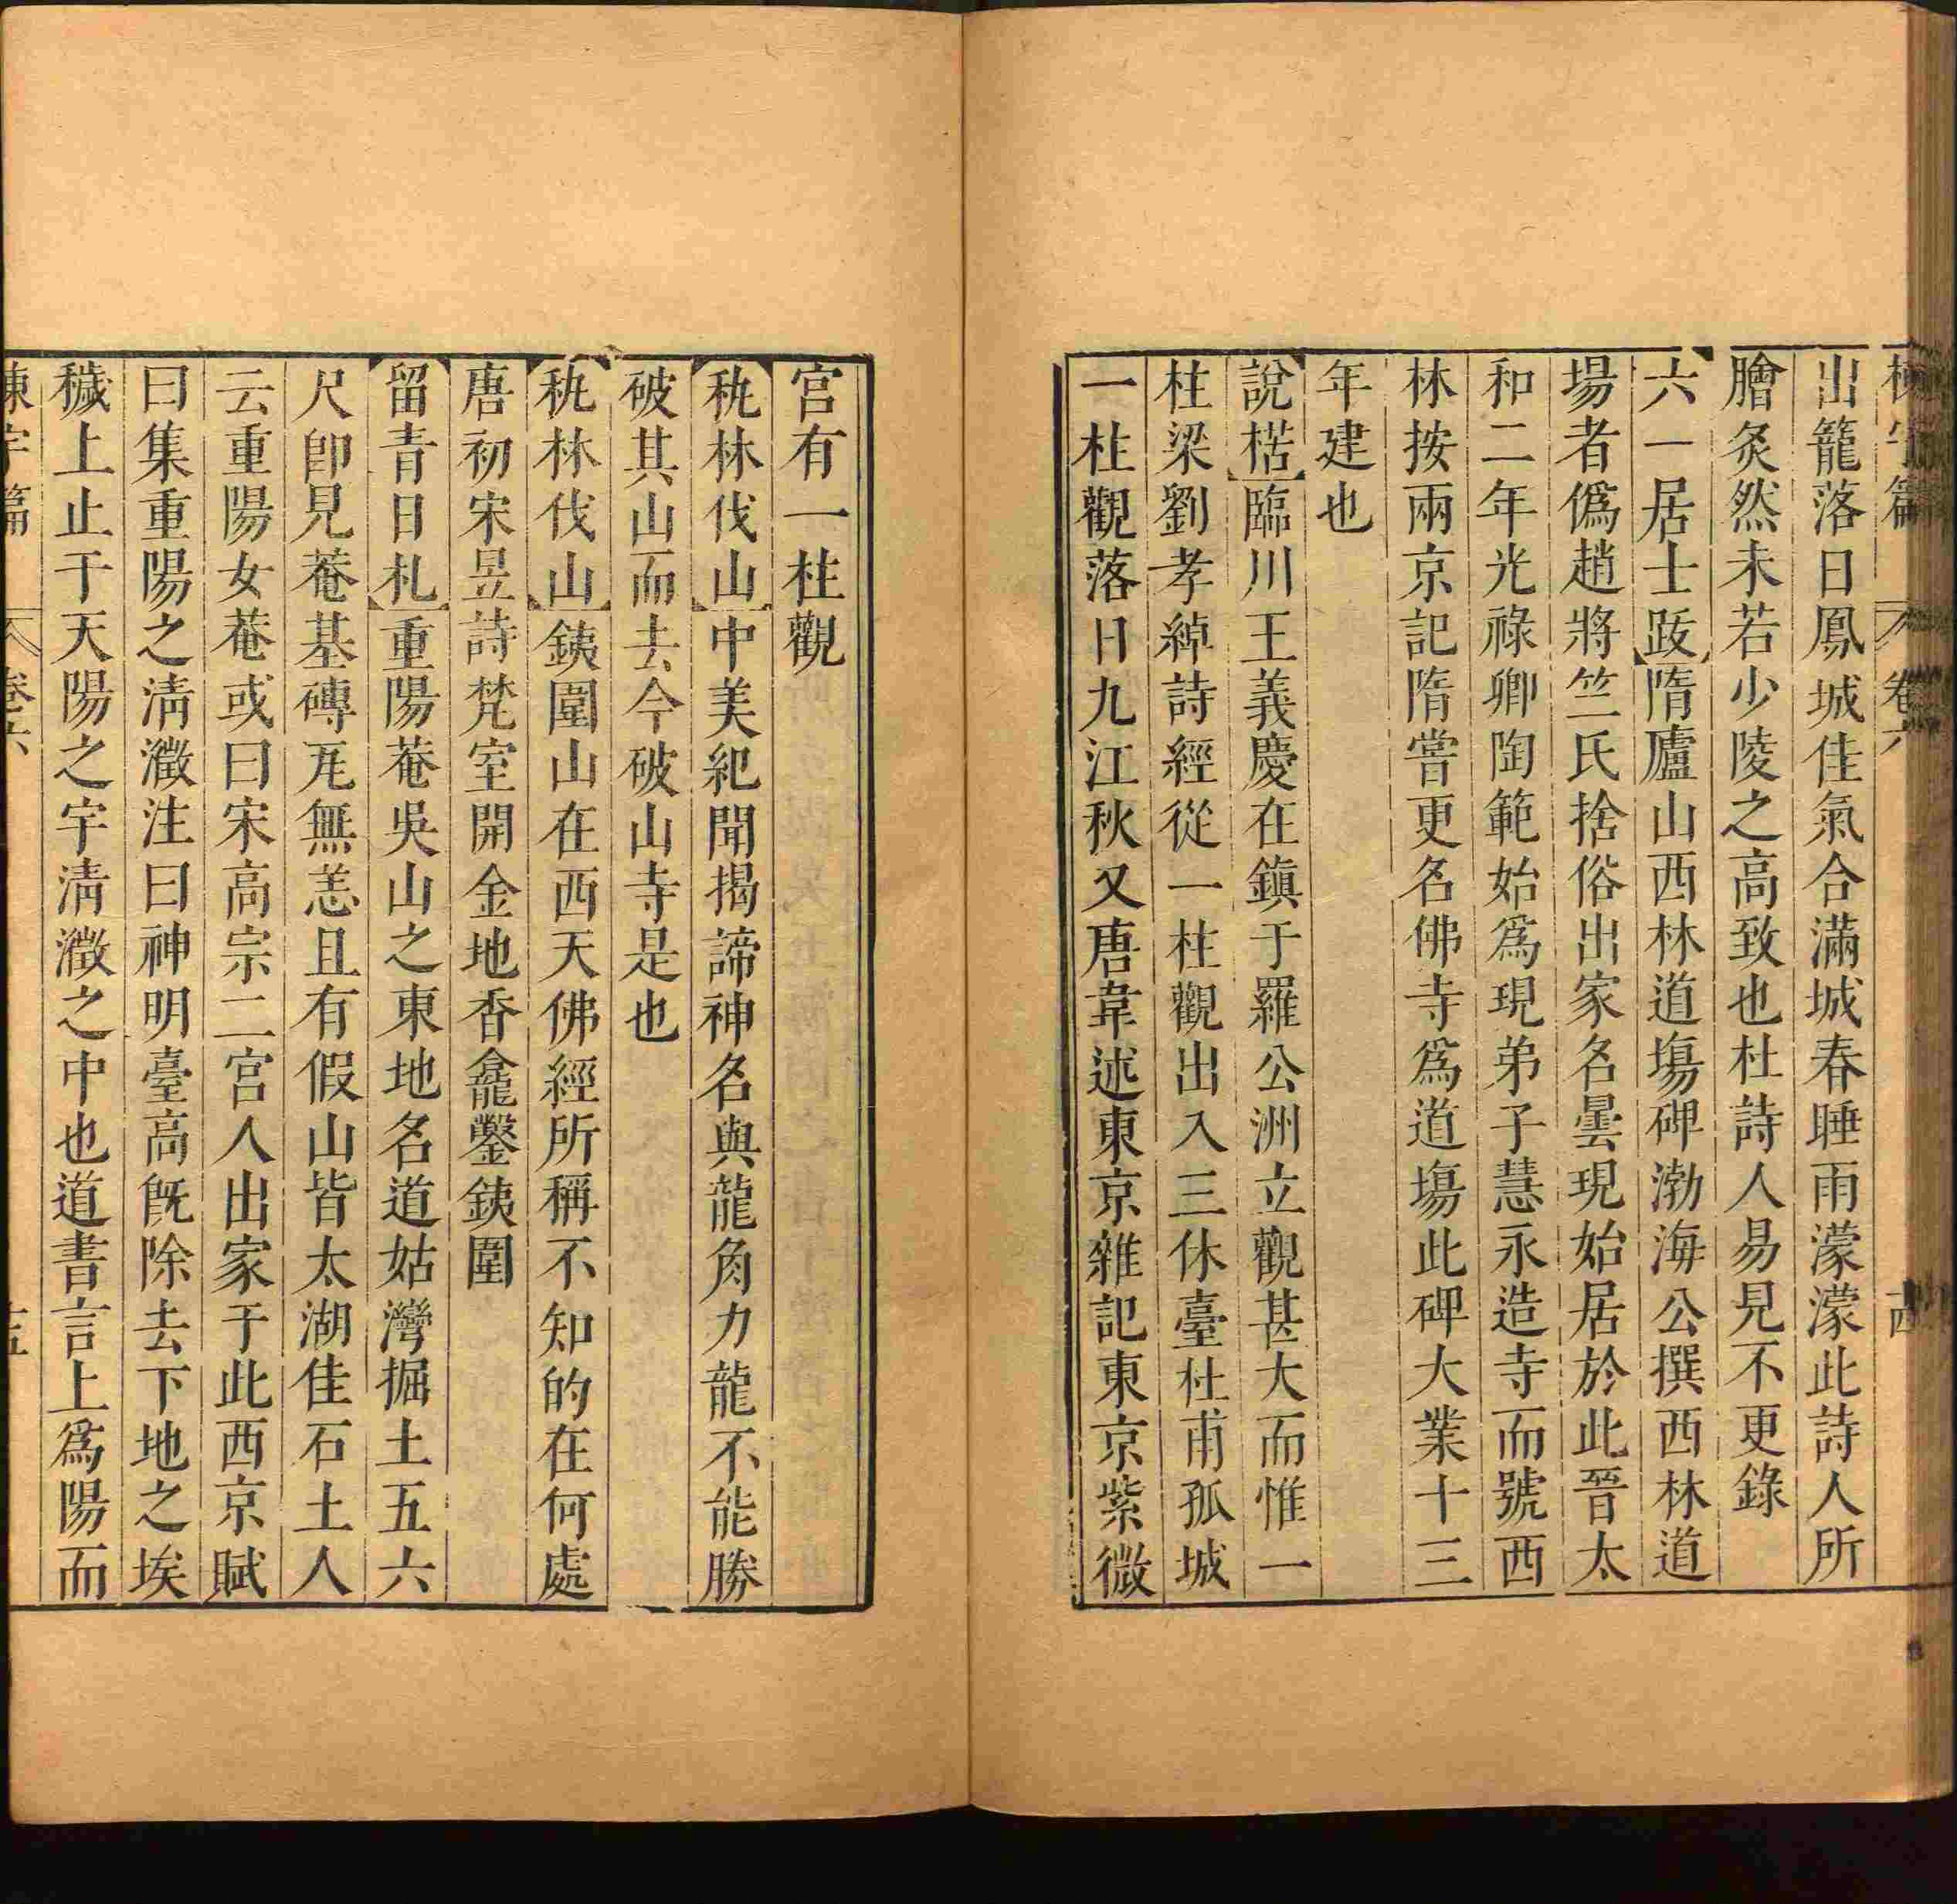 棟宇篇 卷六 十四
出籠落日鳳城佳氣合滿城春睡雨濛濛此詩人所
膾炙然未若少陵之高致也杜詩人易見不更錄
六一居士跋隋廬山西林道塲碑渤海公撰西林道
場者僞趙將竺氏捨俗出家名曇現始居於此晉太
和二年光祿卿陶範始爲現弟子慧永造寺而號西
林按兩京記隋嘗更名佛寺爲道塲此碑大業十三
年建也
說楛臨川王義慶在鎭于羅公洲立觀甚大而惟一
柱梁劉孝綽詩經從一柱觀出入三休臺杜甫孤城
一柱觀落日九江秋又唐韋述東京雜記東京紫微
宮有一柱觀
秇林伐山中美紀聞揭諦神名與龍角力龍不能勝
破其山而去今破山寺是也
秇林伐山銕圍山在西天佛經所稱不知的在何處
唐初宋昱詩梵室開金地香龕鑿銕圍
留青日札重陽菴吳山之東地名道姑灣掘土五六
尺卽見菴基磚瓦無恙且有假山皆太湖佳石土人
云重陽女菴或曰宋高宗二宮人出家于此西京賦
曰集重陽之淸瀓注曰神明臺高旣除去下地之埃
穢上止于天陽之宇淸瀓之中也道書言上爲陽而
棟宇篇 卷六 十五